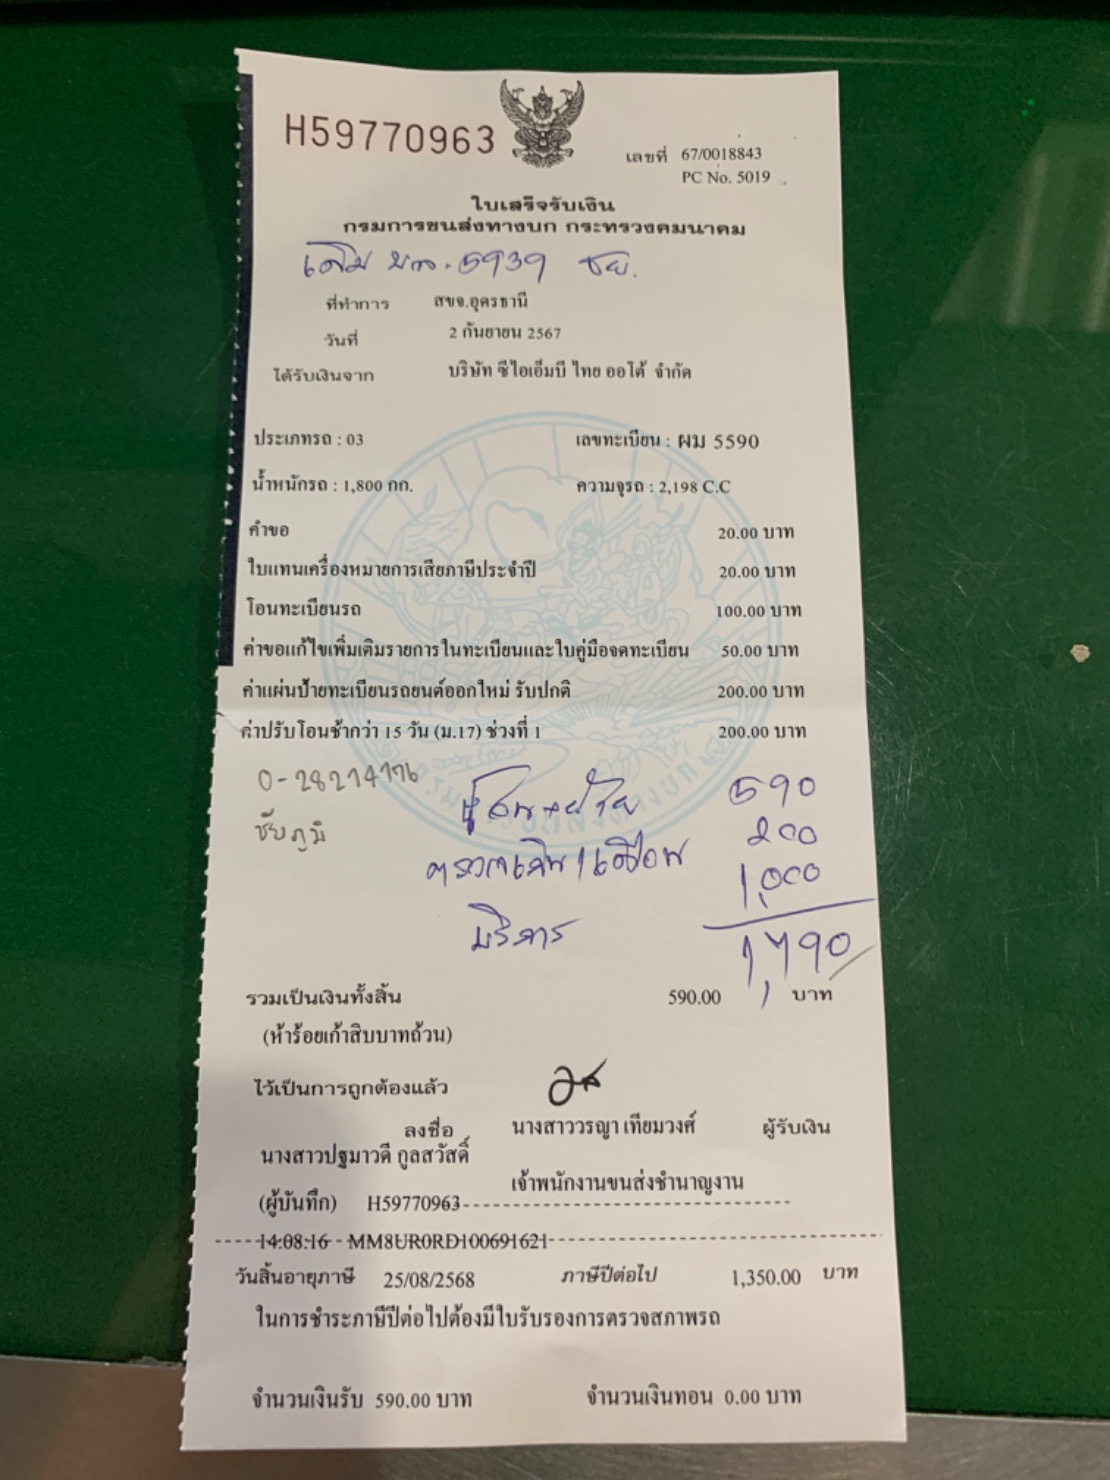 H59770963
เลขที่ 67/0018843
PC No. 5019
ใบเสร็จรับเงิน
กรมการขนส่งทางบก กระทรวงคมนาคม
เดิม 5939 ชย.
ที่ทำการ สขจ.อุดรธานี
วันที่ 2 กันยายน 2567
ได้รับเงินจาก บริษัท ซีไอเอ็มบี ไทย ออโต้ จำกัด
ประเภทรถ : 03 เลขทะเบียน : ผม 5590
น้ำหนักรถ : 1,800 กก. ความจุรถ : 2,198 C.C
คำขอ 20.00 บาท
ใบแทนเครื่องหมายการเสียภาษีประจำปี 20.00 บาท
โอนทะเบียนรถ 100.00 บาท
ค่าขอแก้ไขเพิ่มเติมรายการในทะเบียนและใบคู่มือจดทะเบียน 50.00 บาท
ค่าแผ่นป้ายทะเบียนรถยนต์ออกใหม่ รับปกติ 200.00 บาท
ค่าปรับโอนช้ากว่า 15 วัน (ม.17) ช่วงที่ 1 200.00 บาท
590
ชัยภูมิ 200
ตรวจเกิน 1 เดือน 1,000
บริการ 1,790
รวมเป็นเงินทั้งสิ้น 590.00 บาท
(ห้าร้อยเก้าสิบบาทถ้วน)
ไว้เป็นการถูกต้องแล้ว
ลงชื่อ นางสาววรญา เทียมวงศ์ ผู้รับเงิน
นางสาวปฐมาวดี กูลสวัสดิ์
เจ้าพนักงานขนส่งชำนาญงาน
(ผู้บันทึก) H59770963
14:08:16 MM8UR0RD100691621
วันสิ้นอายุภาษี 25/08/2568 ภาษีปีต่อไป 1,350.00 บาท
ในการชำระภาษีปีต่อไปต้องมีใบรับรองการตรวจสภาพรถ
จำนวนเงินรับ 590.00 บาท จำนวนเงินทอน 0.00 บาท